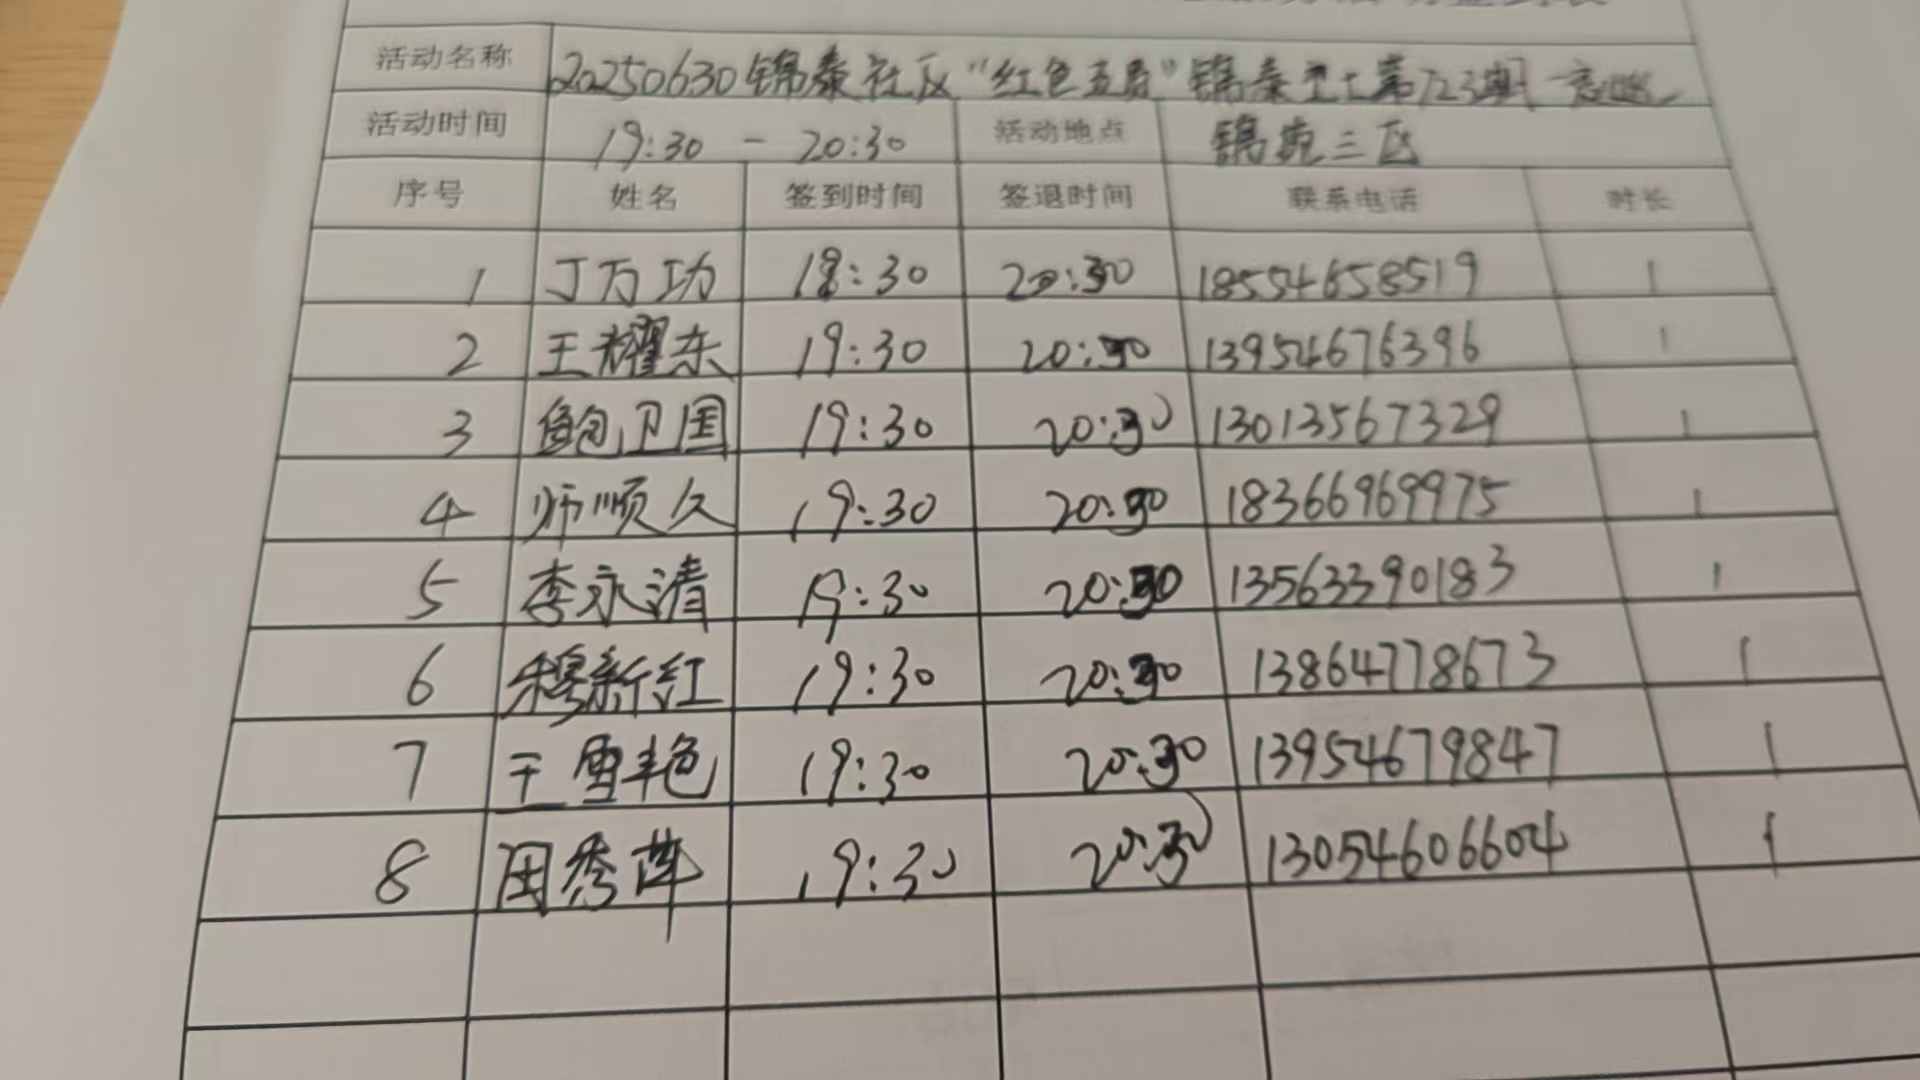 活动名称 20250630锦泰社区"红色五员"锦泰卫士第723期 夜巡
活动时间 19:30 - 20:30 活动地点 锦苑三区
序号 姓名 签到时间 签退时间 联系电话 时长
1 丁万功 18:30 20:30 18554658519 1
2 王耀东 19:30 20:30 13954676396 1
3 鲍卫国 19:30 20:30 13013567329 1
4 师顺久 19:30 20:30 18366969975 1
5 李永清 19:30 20:30 13563390183 1
6 穆新红 19:30 20:30 13864778673 1
7 王雪艳 19:30 20:30 13954679847 1
8 田秀萍 19:30 20:30 13054606604 1